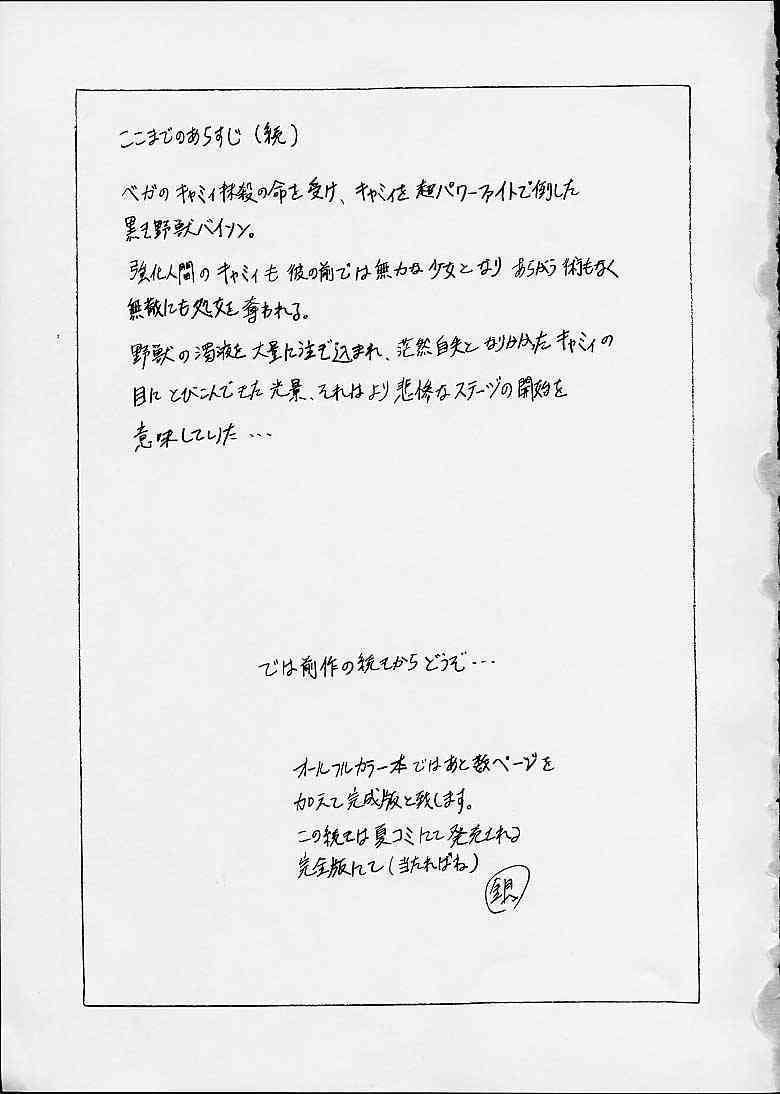 ここまでのあらすじ(続)
ベガのキャミィ抹殺の命を受け、キャミィを超パワーファイトで倒した
黒き野獣バイソン。
強化人間のキャミィも彼の前では無力な少女となりあらがう術もなく
無残にも処女を奪われる。
野獣の濁液を大量に注ぎ込まれ、茫然自失となりかかったキャミィの
目にとびこんできた光景、それはより悲惨なステージの開始を
意味していた…
では前作の続きからどうぞ…
オールフルカラー本ではあと数ページを
加えて完成版と致します。
この続きは夏コミにて発売される
完全版にて(当たればね)
銀